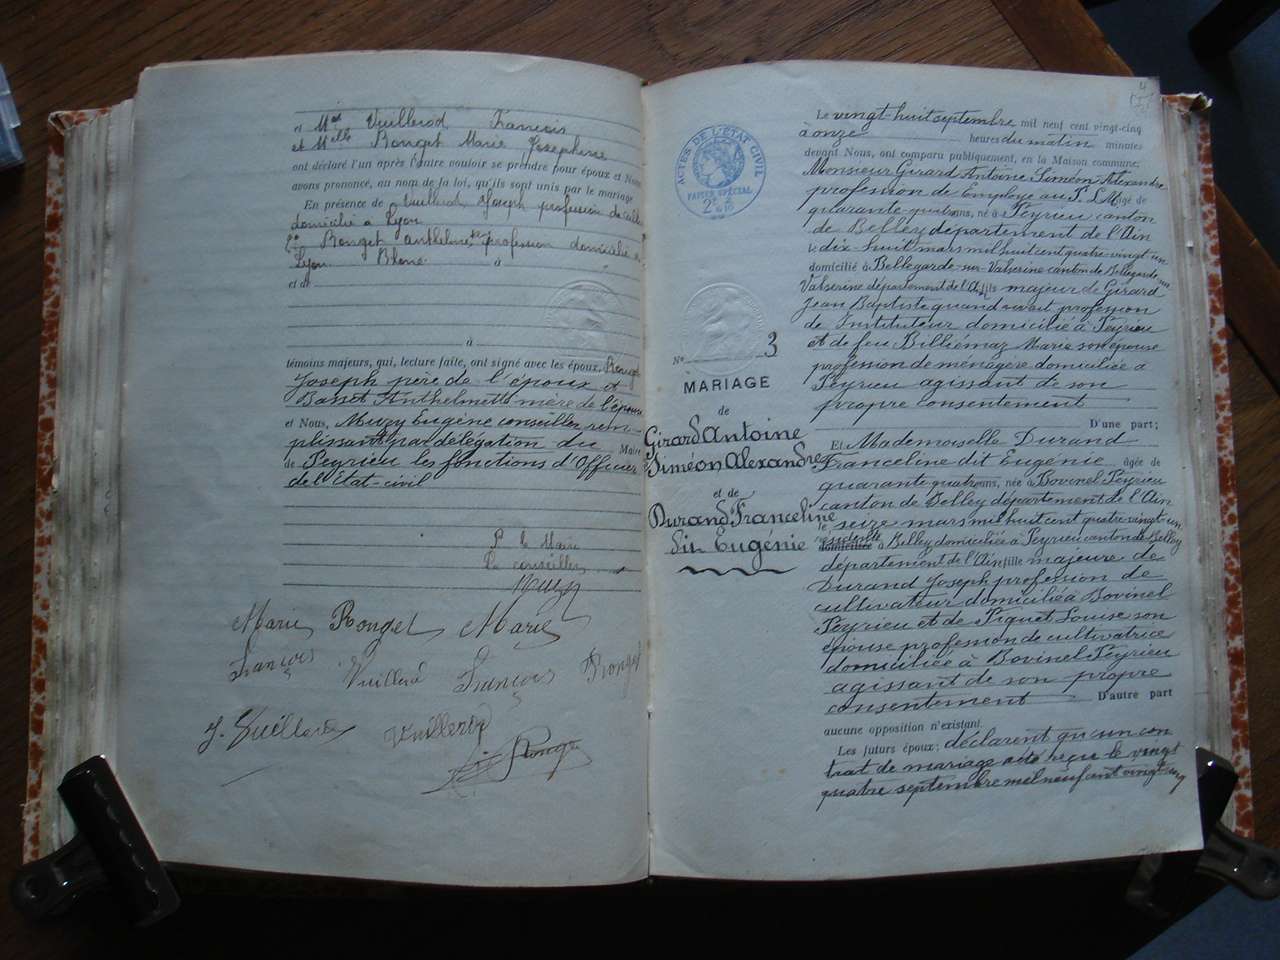 et Mr Vuillerod François
et Melle Rouget Marie Josephine
ont déclaré l'un après l'autre vouloir se prendre pour époux et Nous
avons prononcé, au nom de la loi, qu'ils sont unis par le mariage.
En présence de Vuillerod Joseph profession de
domicilié à Lyon
2e Rouget Anthelme, profession domicilié à
Lyon Rhône à
et de
à
témoins majeurs, qui, lecture faite, ont signé avec les époux, Rouget
Joseph père de l'époux et
Basset Anthelmette mère de l'épouse
et Nous, Muzy Eugène conseiller rem-
plissant par délégation du Maire
de Peyrieu les fonctions d'Officier
de l'Etat-civil
P. le Maire
Le conseiller
Muzy
Marie Rouget Marie
François Vuillerod François Rouget
J. Vuillerod Vuillerod
Rouget
4
ACTES DE L'ÉTAT CIVIL
PAPIER SPÉCIAL
No 3
MARIAGE
de
Girard Antoine
Siméon Alexandre
et de
Durand Franceline
dit Eugénie
Le vingt-huit septembre mil neuf cent vingt-cinq
à onze heures du matin minutes
devant Nous, ont comparu publiquement, en la Maison commune:
Monsieur Girard Antoine Siméon Alexandre
profession de Employé au P.L.M. âgé de
quarante-quatre ans, né à Peyrieu canton
de Belley département de l'Ain
le dix huit mars mil huit cent quatre-vingt-un
domicilié à Bellegarde-sur-Valserine canton de Bellegarde-sur-
Valserine département de l'Ain fils majeur de Girard
Jean Baptiste quand vivait profession
de Instituteur domicilié à Peyrieu
et de feu Billiémaz Marie son épouse
profession de ménagère domiciliée à
Peyrieu agissant de son
propre consentement
D'une part;
Et Mademoiselle Durand
Franceline dit Eugénie âgée de
quarante quatre ans, née à Bovinel Peyrieu
canton de Belley département de l'Ain
le seize mars mil huit cent quatre-vingt-un
résidente domiciliée à Belley domiciliée à Peyrieu canton de Belley
département de l'Ain fille majeure de
Durand Joseph profession de
cultivateur domicilié à Bovinel
Peyrieu et de Piquet Louise son
épouse profession de cultivatrice
domiciliée à Bovinel Peyrieu
agissant de son propre
consentement D'autre part
aucune opposition n'existant.
Les futurs époux: déclarent qu'un con
trat de mariage a été reçu le vingt
quatre septembre mil neuf cent vingt-cinq